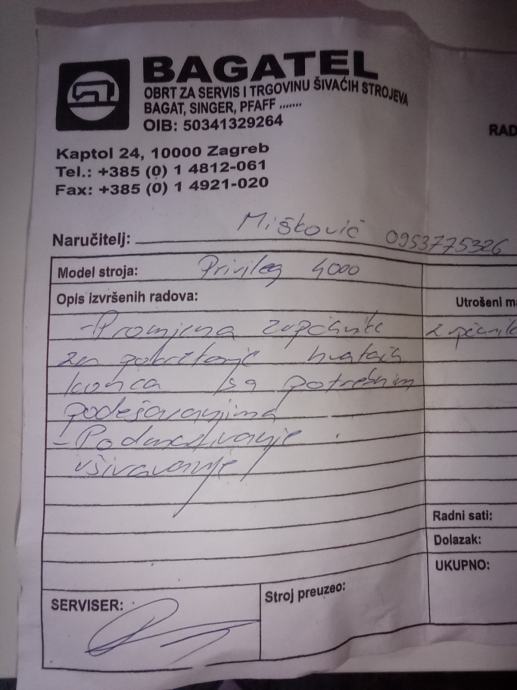 BAGATEL
OBRT ZA SERVIS I TRGOVINU ŠIVAĆIH STROJEVA
BAGAT, SINGER, PFAFF .......
OIB: 50341329264
Kaptol 24, 10000 Zagreb
Tel.: +385 (0) 1 4812-061
Fax: +385 (0) 1 4921-020
RAD
Naručitelj: Mišković 0953775326
Model stroja: Privileg 4000
Opis izvršenih radova:
Utrošeni ma
- Promjena zupčanika
za pokretanje hvatača
konca sa potrebnim
podešavanjima
- Podmazivanje
ušivavanje
Radni sati:
Dolazak:
UKUPNO:
SERVISER:
Stroj preuzeo: